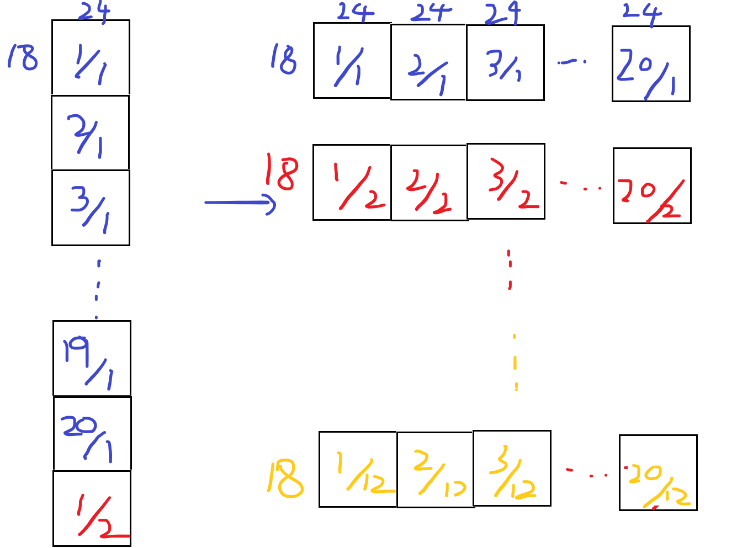 24
18
1/1
2/1
3/1
19/1
20/1
1/2
24 24 24 24
18 1/1 2/1 3/1 ... 20/1
18 1/2 2/2 3/2 ... 20/2
18 1/12 2/12 3/12 ... 20/12